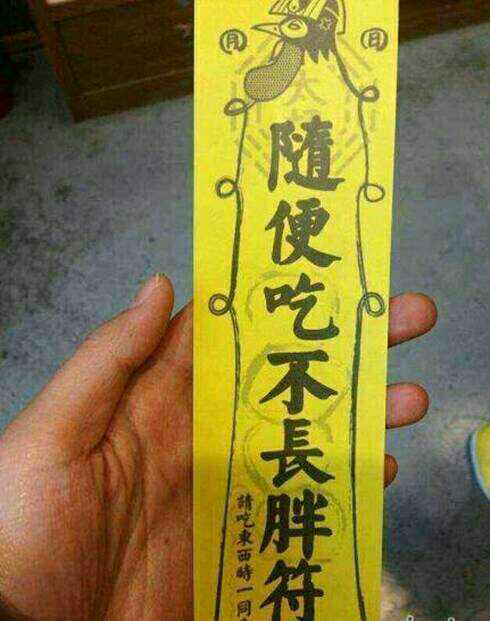 月
日
隨便吃不長胖符
請吃東西時一同